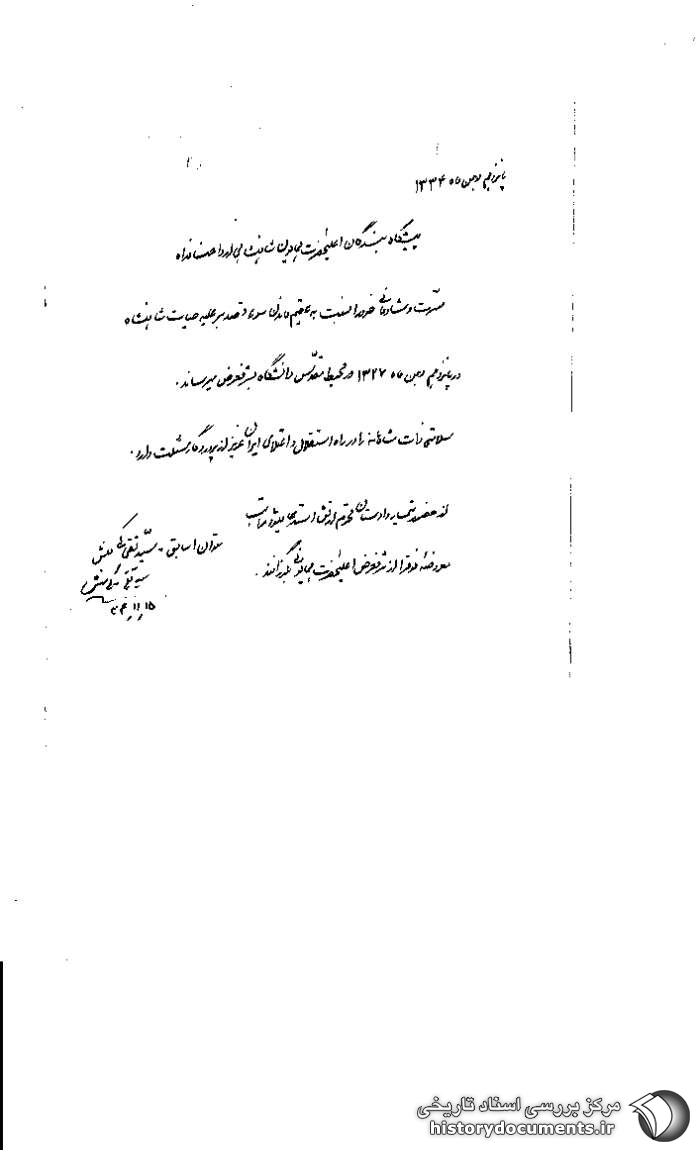 پانزدهم بهمن ماه ۱۳۳۴
پیشگاه بندگان اعلیحضرت همایون شاهنشاهی ارواحنا فداه
مسرت و شادمانی خود را نسبت به عقیم ماندن سوء قصد بر علیه حیات شاهنشاه
در پانزدهم بهمن ماه ۱۳۲۷ در محیط مقدس دانشگاه بشرفعرض میرساند.
سلامتی ذات شاهانه را در راه استقلال و اعتلای ایران عزیز از پروردگار مسئلت دارد.
از حضرت تیمسار دادستان محترم ارتش استدعا میشود مراتب
معروضه فوق را از شرفعرض اعلیحضرت همایونی بگذرانند.
ستوان ۱ سابق - سید تقی کی منش
۳۴/۱۱/۱۵
مرکز بررسی اسناد تاریخی
historydocuments.ir